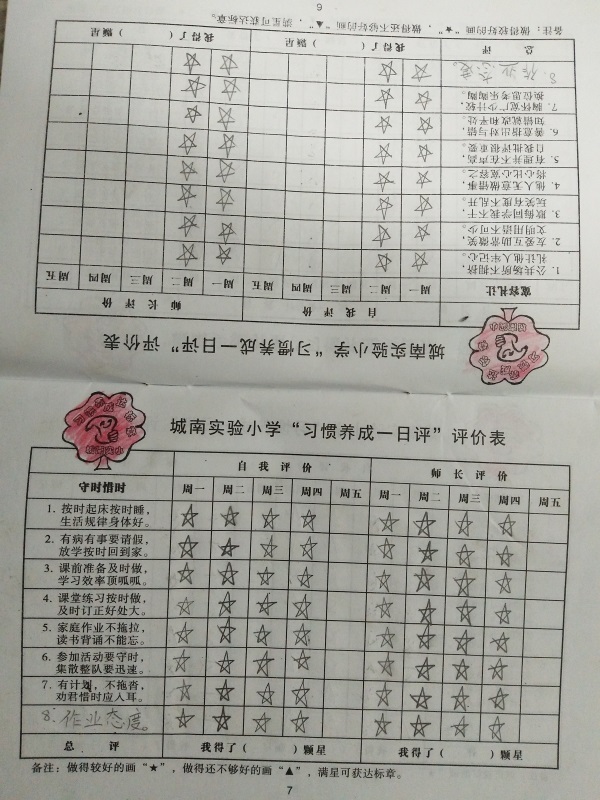 6
备注：做得较好的画“★”，做得还不够好的画“▲”，满星可获达标章。
总 评 我得了（ ）颗星 我得了（ ）颗星
8. 作业态度。
7. 胸怀宽广少计较，
换位思考乐陶陶。
6. 善意指出对与错，
知错就改和平处。
5. 有理并不在声高，
自我批评很重要。
4. 他人无意做错事，
将心比心宽容之。
3. 欺侮同学我不干，
玩笑有度不乱开。
2. 友爱互助常微笑，
文明用语不可少。
1. 公共场所不拥挤，
礼让他人牢记心。
宽容礼让 周一 周二 周三 周四 周五 周一 周二 周三 周四 周五
自我评价 师长评价
城南实验小学“习惯养成一日评”评价表
城南实验小学“习惯养成一日评”评价表
自我评价 师长评价
守时惜时 周一 周二 周三 周四 周五 周一 周二 周三 周四 周五
1. 按时起床按时睡，
生活规律身体好。
2. 有病有事要请假，
放学按时回到家。
3. 课前准备及时做，
学习效率顶呱呱。
4. 课堂练习按时做，
及时订正好处大。
5. 家庭作业不拖拉，
读书背诵不能忘。
6. 参加活动要守时，
集散整队要迅速。
7. 有计划，不拖沓，
劝君惜时应入耳。
8. 作业态度。
总 评 我得了（ ）颗星 我得了（ ）颗星
备注：做得较好的画“★”，做得还不够好的画“▲”，满星可获达标章。
7